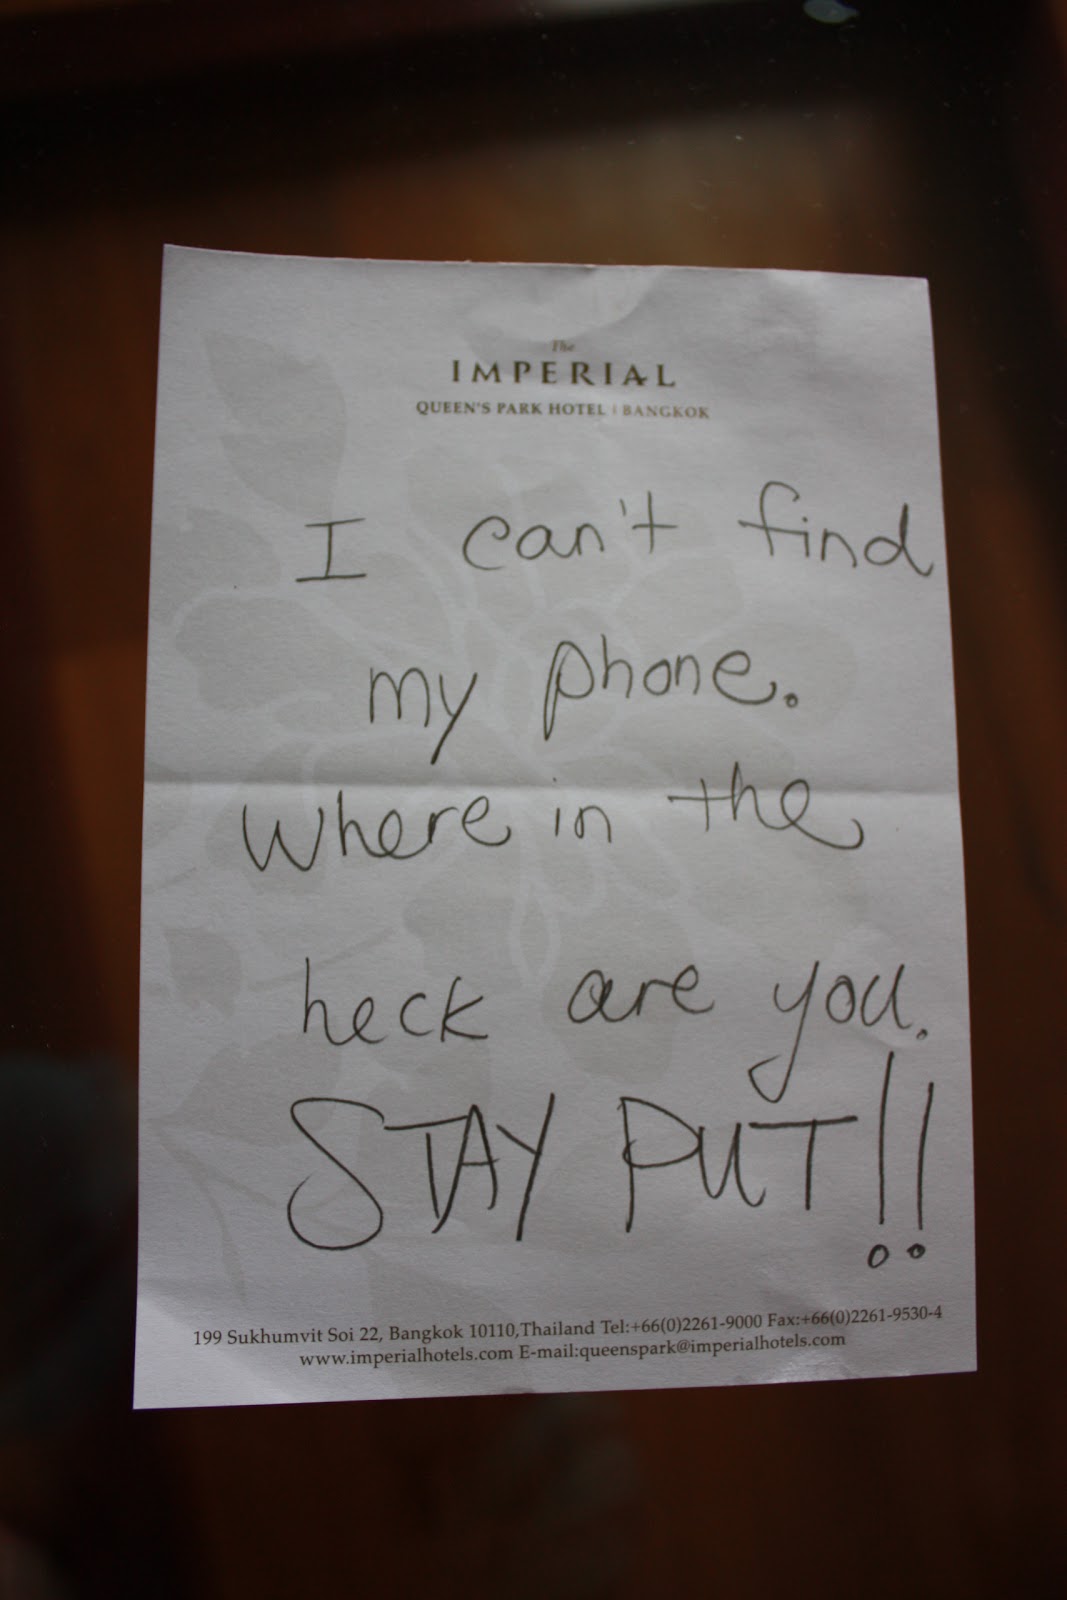 The
IMPERIAL
QUEEN'S PARK HOTEL | BANGKOK
I can't find
my phone.
Where in the
heck are you.
STAY PUT!!
199 Sukhumvit Soi 22, Bangkok 10110,Thailand Tel:+66(0)2261-9000 Fax:+66(0)2261-9530-4
www.imperialhotels.com E-mail:queenspark@imperialhotels.com